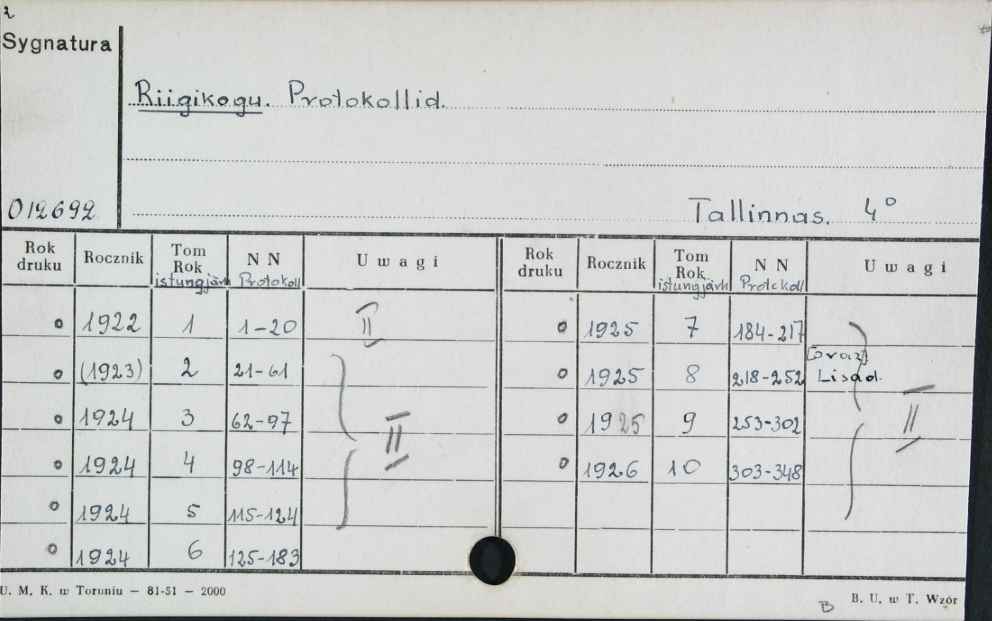 2
Sygnatura
Riigikogu. Protokollid.
012692
Tallinnas. 4°
Rok druku Rocznik Tom Rok istungjärk N N Protokoll Uwagi Rok druku Rocznik Tom Rok istungjärk N N Protokoll Uwagi
o 1922 1 1-20 II o 1925 7 184-217
[oraz]
o (1923) 2 21-61 o 1925 8 218-252 Lisad.
o 1924 3 62-97 II o 1925 9 253-302 II
o 1924 4 98-114 o 1926 10 303-348
o 1924 5 115-124
o 1924 6 125-183
U. M. K. w Toruniu — 81-51 — 2000
B B. U. w T. Wzór